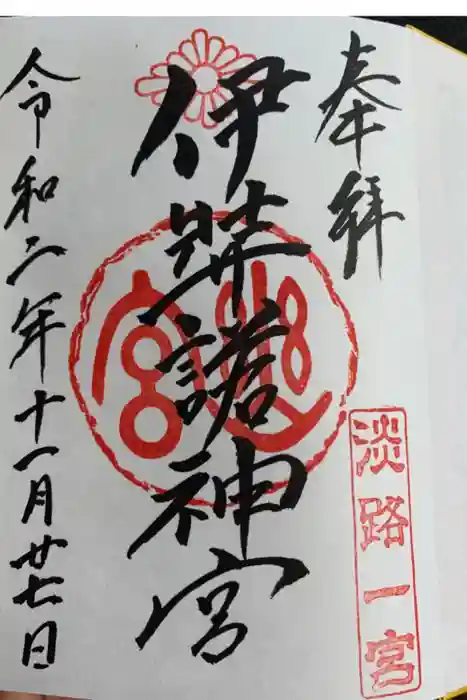 奉拝
淡路一宮
伊弉諾神宮
令和二年十一月廿七日